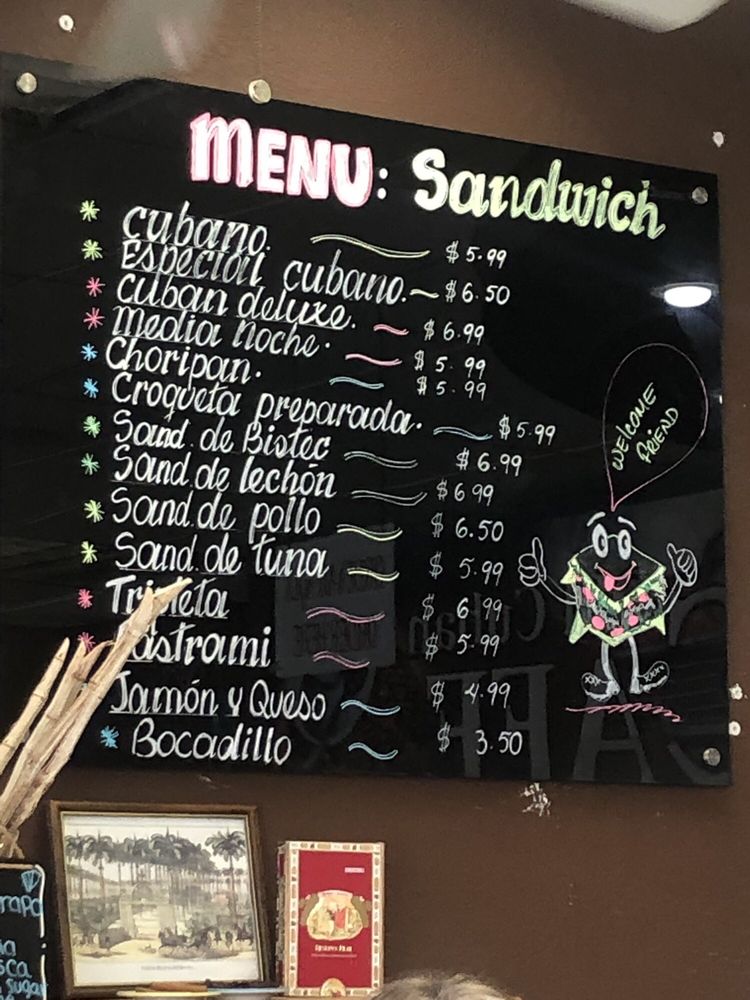 MENU: Sandwich
* Cubano. $5.99
* Especial cubano. $6.50
* Cuban deluxe. $6.99
* Media noche. $5.99
* Choripan. $5.99
* Croqueta preparada. $5.99
* Sand. de Bistec $6.99
* Sand. de lechón $6.99
* Sand. de pollo $6.50
* Sand. de tuna $5.99
* Tripleta $6.99
* Pastrami $5.99
Jamón y Queso $4.99
* Bocadillo $3.50
WELCOME
FRIEND